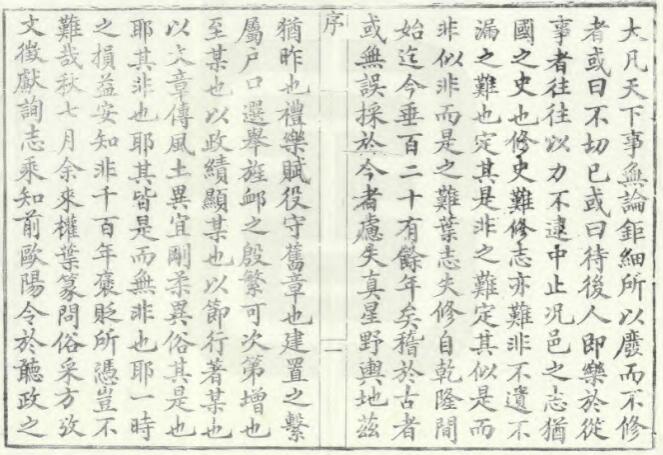 大凡天下事無論鉅細所以廢而不修
者或曰不切已或曰待後人即樂於從
事者往往以力不逮中止况邑之志猶
國之史也修史難修志亦難非不遺不
漏之難也定其是非之難定其似是而
非似非而是之難葉志失修自乾隆間
始迄今垂百二十有餘年矣稽於古者
或無誤採於今者慮失真星野輿地茲
序
二
猶昨也禮樂賦役守舊章也建置之繫
屬戶口選舉旌卹之殷繁可次第增也
至某也以政績顯某也以節行著某也
以文章傳風土異宜剛柔異俗其是也
耶其非也耶其皆是而無非也耶一時
之損益安知非千百年褒貶所憑豈不
難哉秋七月余來權葉篆問俗采方攷
文徵獻詢志乘知前歐陽令於聽政之